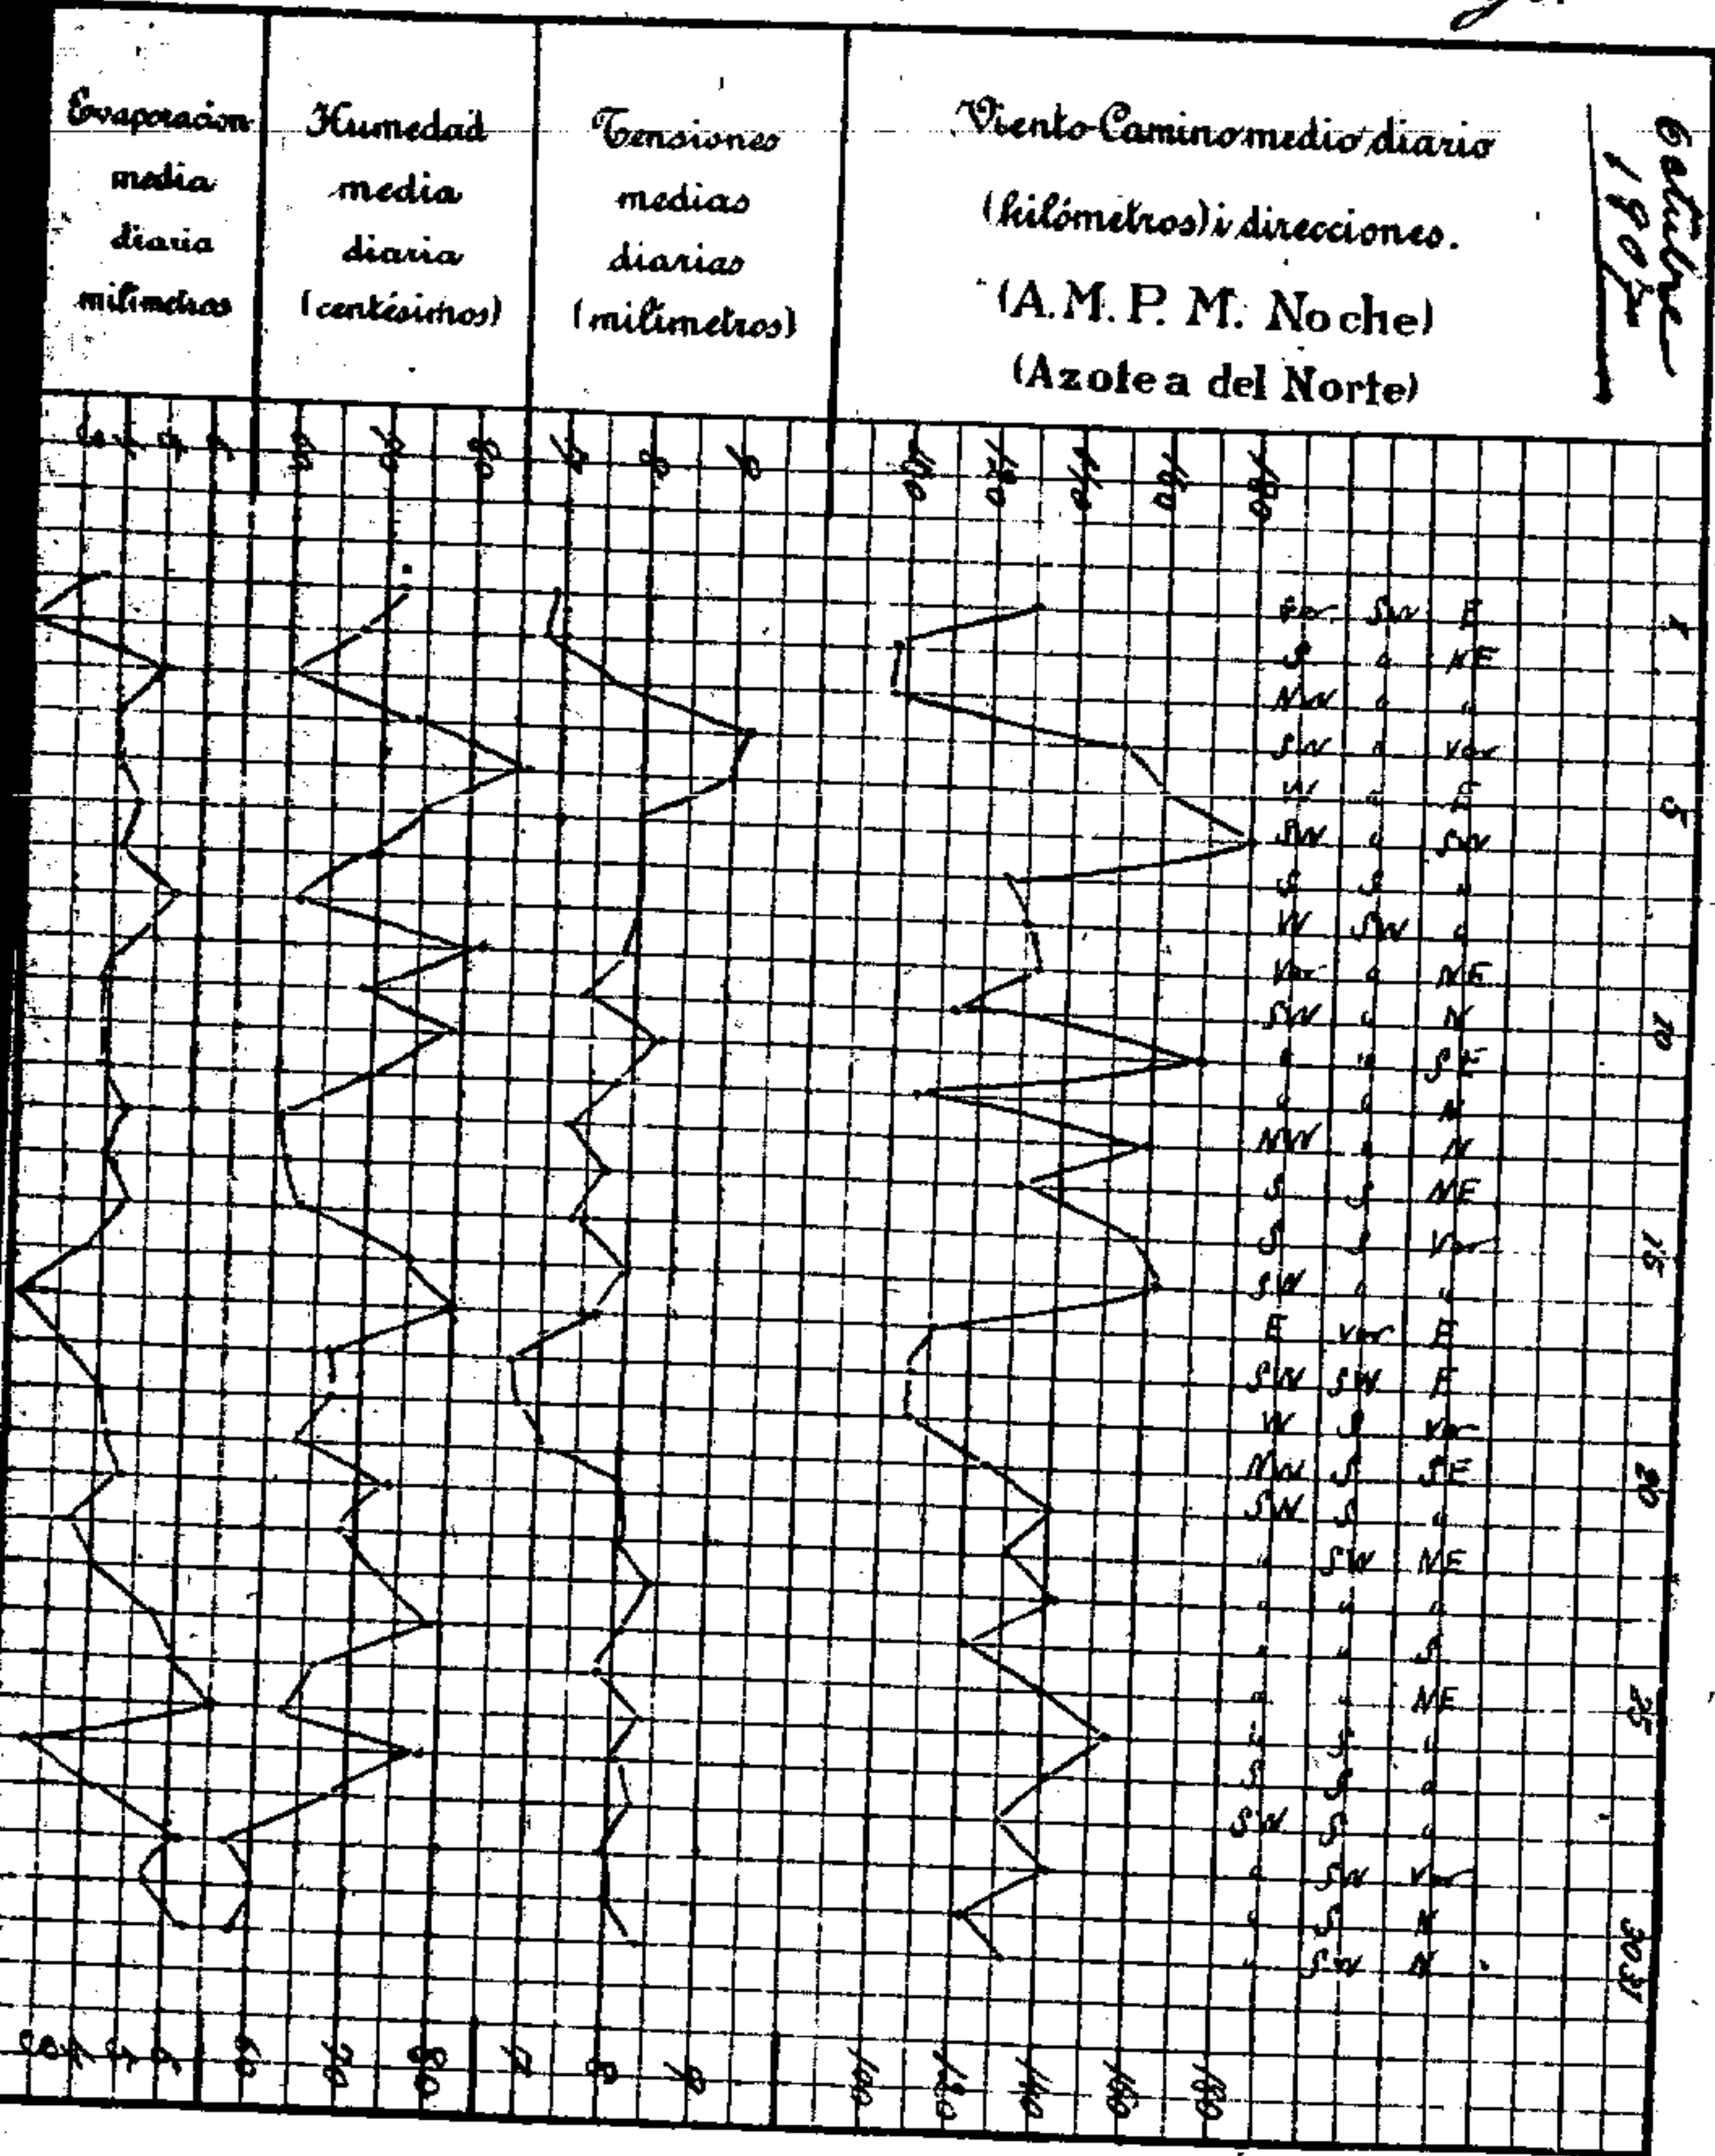 Evaporacion
media
diaria
milimetros
Humedad
media
diaria
(centésimos)
Tensiones
medias
diarias
(milimetros)
Viento-Camino medio diario
(kilómetros) i direcciones.
(A.M. P. M. Noche)
(Azotea del Norte)
60 70 80 7 8 9 100 120 140 160 180
Var SW E 1
S " NE
NW " "
SW " Var
W " E 5
SW " SW
S S "
W SW "
Var " NE
SW " N 10
" " SE
" " N
NW " N
S S NE
S S Var 15
SW " "
E Var E
SW SW E
W S Var
NW S SE 20
SW S "
" SW NE
" " "
" " S
" " NE 25
" S "
S S "
SW S "
" SW Var
" S N 30
" SW N 31
3 4 5 6 60 70 80 7 8 9 100 120 140 160 180